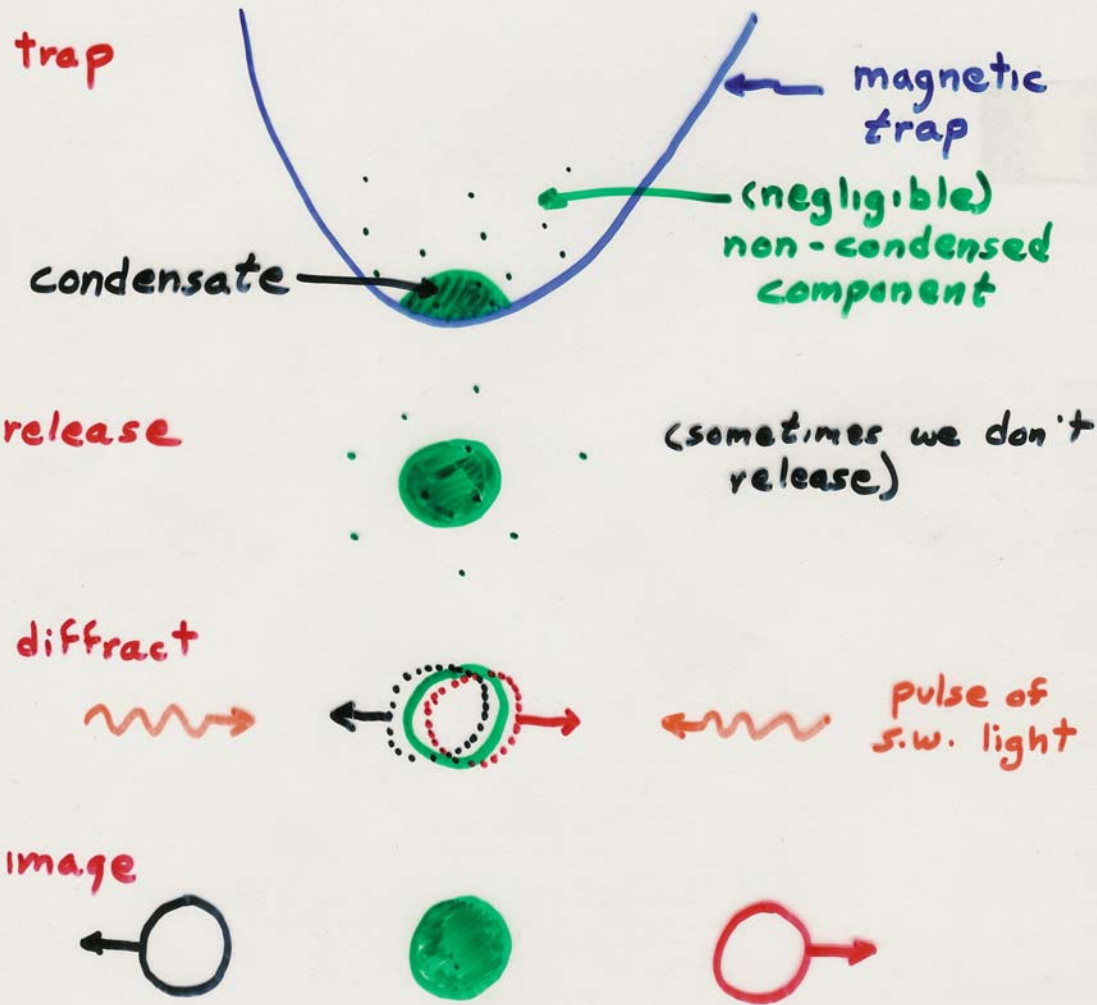 trap
magnetic
trap
(negligible)
non-condensed
component
condensate
release
(sometimes we don't
release)
diffract
pulse of
s.w. light
image